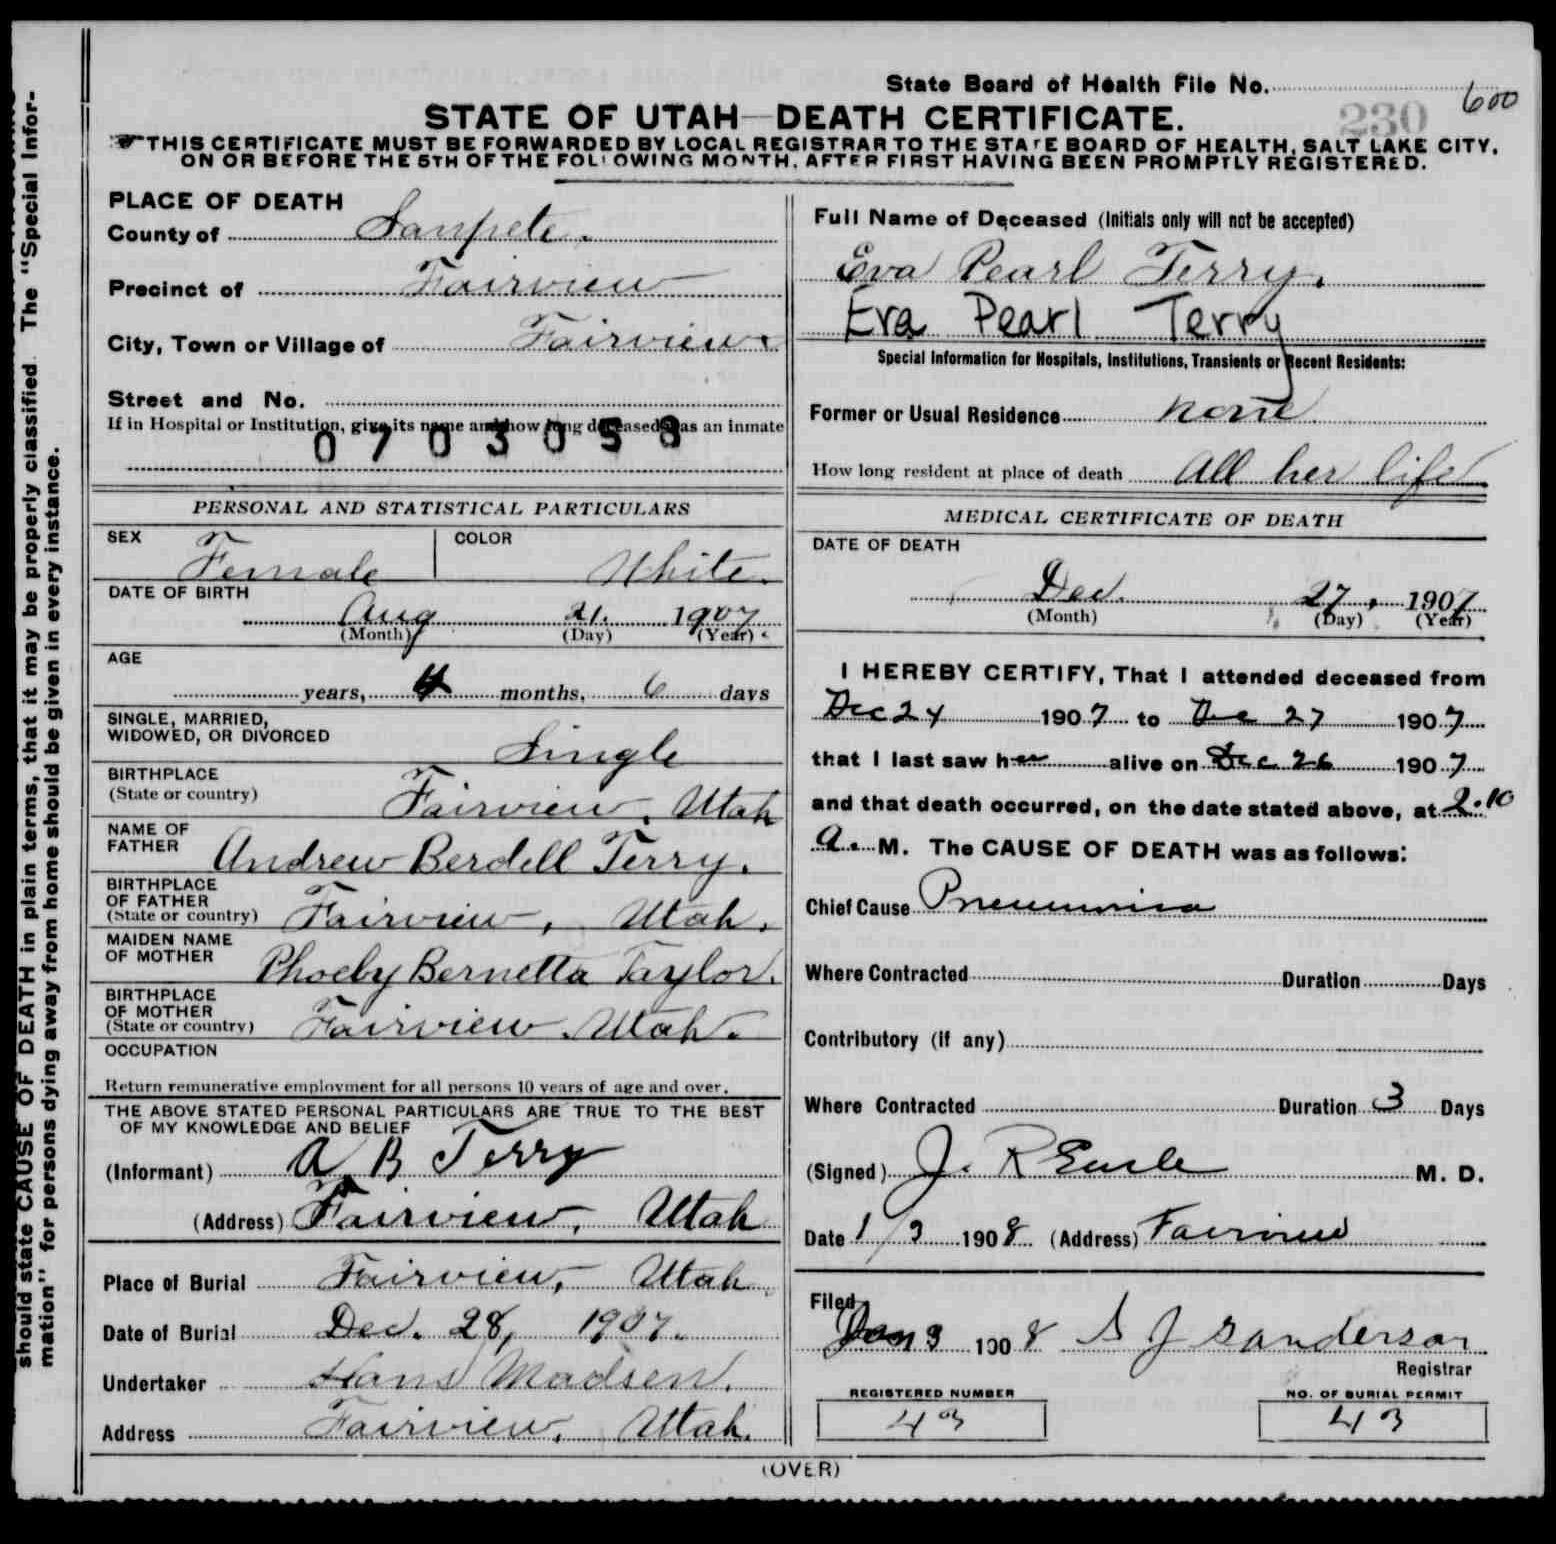 should state CAUSE OF DEATH in plain terms, that it may be properly classified. The "Special Infor-
mation" for persons dying away from home should be given in every instance.
State Board of Health File No. 600
230
STATE OF UTAH—DEATH CERTIFICATE.
THIS CERTIFICATE MUST BE FORWARDED BY LOCAL REGISTRAR TO THE STATE BOARD OF HEALTH, SALT LAKE CITY,
ON OR BEFORE THE 5TH OF THE FOLLOWING MONTH, AFTER FIRST HAVING BEEN PROMPTLY REGISTERED.
PLACE OF DEATH
County of Sanpete.
Precinct of Fairview
City, Town or Village of Fairview.
Street and No.
If in Hospital or Institution, give its name and how long deceased was an inmate
0703058
PERSONAL AND STATISTICAL PARTICULARS
SEX Female COLOR White.
DATE OF BIRTH
Aug 21. 1907
(Month) (Day) (Year)
AGE
years, 4 months, 6 days
SINGLE, MARRIED,
WIDOWED, OR DIVORCED Single
BIRTHPLACE
(State or country) Fairview, Utah
NAME OF
FATHER Andrew Berdell Terry.
BIRTHPLACE
OF FATHER
(State or country) Fairview, Utah.
MAIDEN NAME
OF MOTHER Phoeby Bernetta Taylor.
BIRTHPLACE
OF MOTHER
(State or country) Fairview, Utah.
OCCUPATION
Return remunerative employment for all persons 10 years of age and over.
THE ABOVE STATED PERSONAL PARTICULARS ARE TRUE TO THE BEST
OF MY KNOWLEDGE AND BELIEF
(Informant) A B Terry
(Address) Fairview, Utah
Place of Burial Fairview, Utah
Date of Burial Dec. 28, 1907.
Undertaker Hans Madsen.
Address Fairview, Utah.
Full Name of Deceased (Initials only will not be accepted)
Eva Pearl Terry.
Eva Pearl Terry
Special Information for Hospitals, Institutions, Transients or Recent Residents:
Former or Usual Residence none
How long resident at place of death All her life
MEDICAL CERTIFICATE OF DEATH
DATE OF DEATH
Dec. 27, 1907
(Month) (Day) (Year)
I HEREBY CERTIFY, That I attended deceased from
Dec 24 1907 to Dec 27 1907
that I last saw her alive on Dec 26 1907
and that death occurred, on the date stated above, at 2.10
A. M. The CAUSE OF DEATH was as follows:
Chief Cause Pneumonia
Where Contracted Duration Days
Contributory (if any)
Where Contracted Duration 3 Days
(Signed) J. R Earle M. D.
Date 1/3 1908 (Address) Fairview
Filed
Jan 3 1908 S J Sanderson
Registrar
REGISTERED NUMBER
43
NO. OF BURIAL PERMIT
43
(OVER)